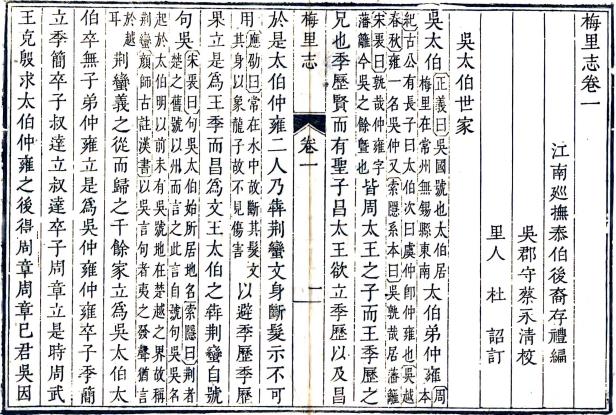 梅里志卷一
江南廵撫泰伯後裔存禮編
吳郡守蔡永清校
里人杜詔訂
吳太伯世家
吳太伯正義曰吳國號也太伯居梅里在常州無錫縣東南太伯弟仲雍周本
紀古公有長子曰太伯次曰虞仲卽仲雍也吳越春秋雍一名吳仲又索隱系本曰吳孰哉居藩籬
宋衷曰孰哉仲雍字藩籬今吳之餘曁也皆周太王之子而王季歷之
兄也季歷賢而有聖子昌太王欲立季歷以及昌
梅里志 卷一 一
於是太伯仲雍二人乃犇荆蠻文身斷髮示不可
用應劭曰常在水中故斷其髮文其身以象龍子故不見傷害以避季歷季歷
果立是為王季而昌為文王太伯之犇荆蠻自號
句吳宋衷曰句吳太伯始所居地名索隱曰荆者楚之舊號以州而言之此言自號句吳吳名
起於太伯明以前未有吳號地在楚越之界故稱荆蠻顔師古註漢書以吳言句者夷之發聲猶言
於越耳荆蠻義之從而歸之千餘家立為吳太伯太
伯卒無子弟仲雍立是為吳仲雍仲雍卒子季簡
立季簡卒子叔達立叔達卒子周章立是時周武
王克殷求太伯仲雍之後得周章周章已君吳因